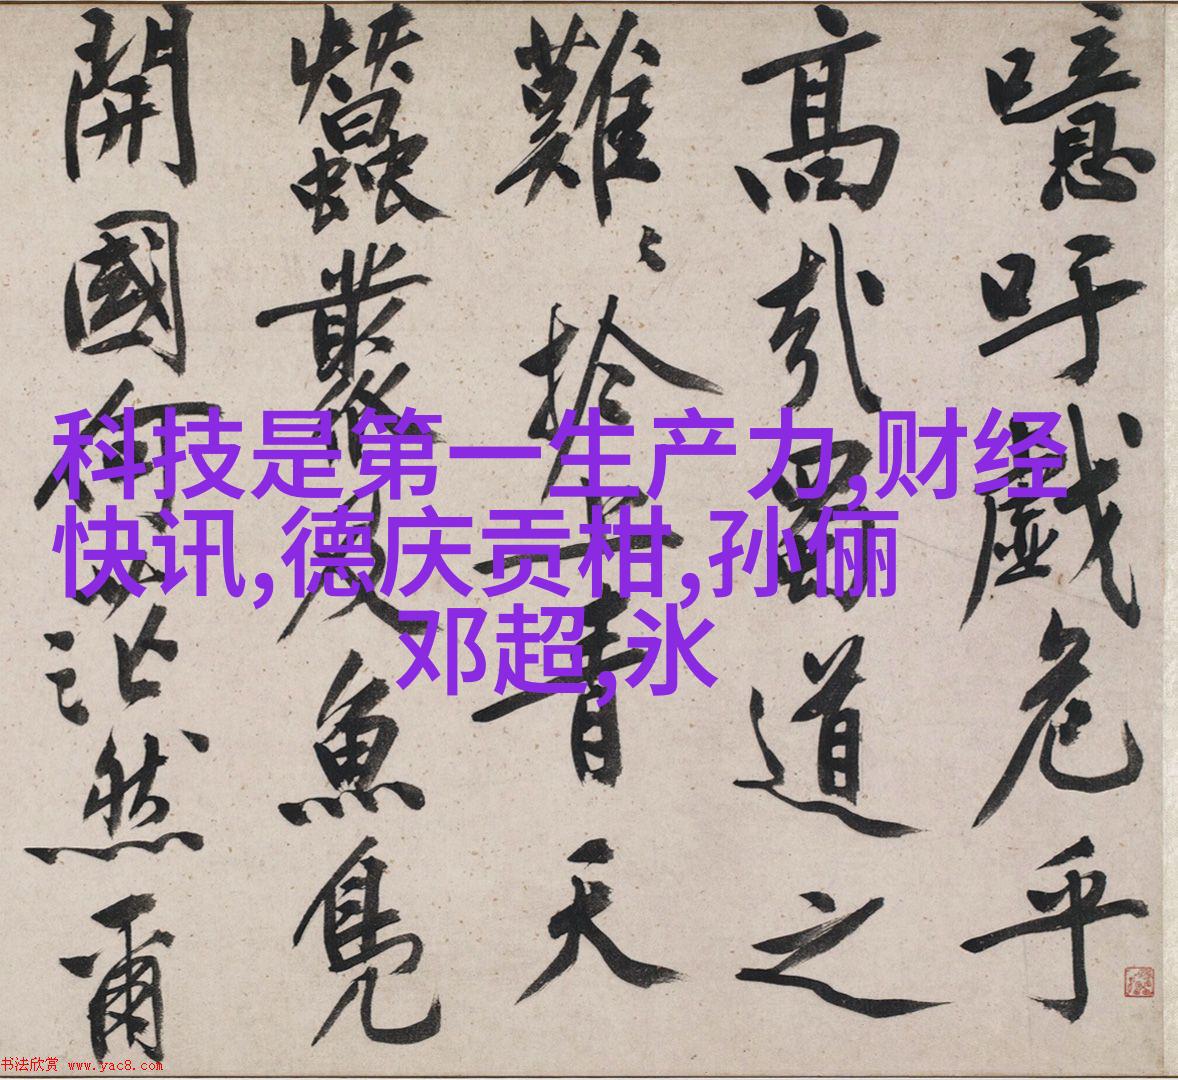 噫吁戲危乎
高哉蜀道之
難〻扵上青天
蠶叢及魚鳧
開國何茫然爾
科技是第一生产力,财经
快讯,德庆贡柑,孙俪
邓超,永
书法欣赏 www.yac8.com